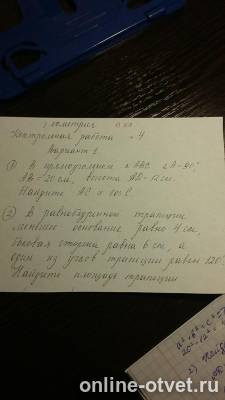 Геометрия 8 кл
Контрольная работа № 4
Вариант 1
① В прямоугольном △ ABC ∠A=90°
AB=20 см, высота AD=12 см.
Найдите AC и cos C.
② В равнобедренной трапеции
меньшее основание равно 4 см,
боковая сторона равна 6 см, а
один из углов трапеции равен 120°
Найдите площадь трапеции
online-otvet.ru